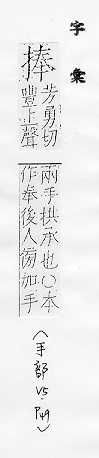 字彙
捧
芳勇切
豐上聲
兩手拱承也〇本
作奉後人偹加手
(手部 V5 P49)